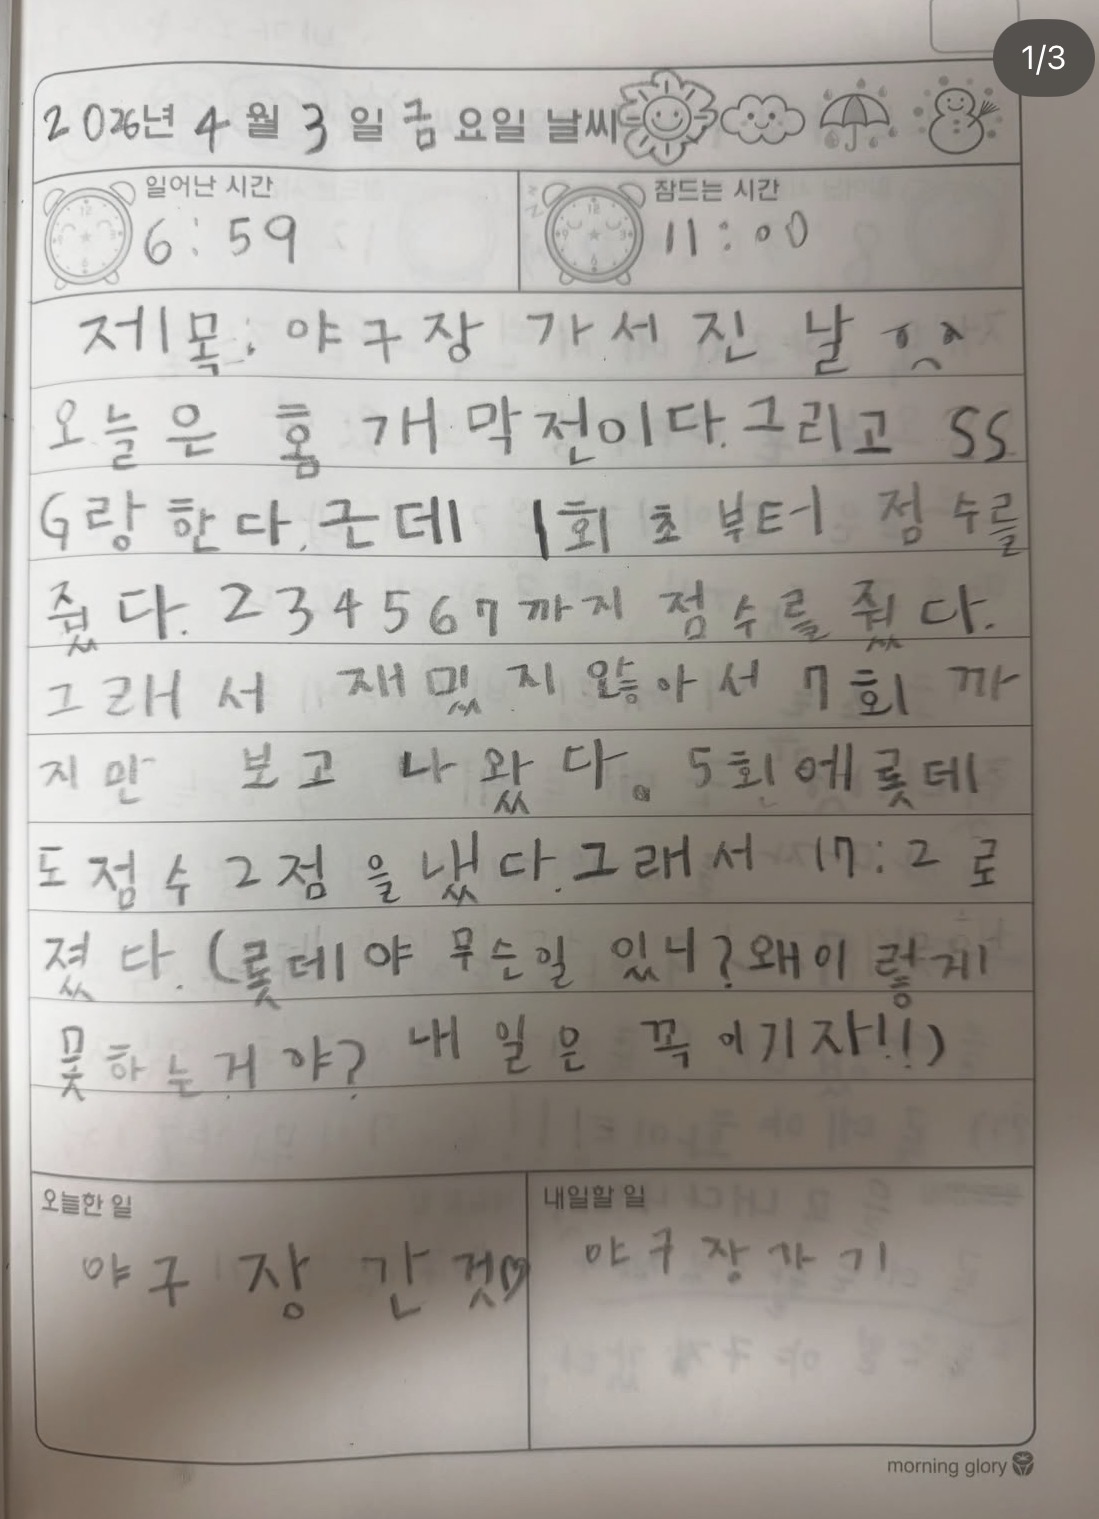 1/3
2026년 4월 3일 금요일 날씨
일어난 시간
6:59
잠드는 시간
11:00
제목: 야구장 가서 진 날 ㅠㅠ
오늘은 홈 개막전이다. 그리고 SS
G랑 한다. 근데 1회 초부터 점수를
줬다. 234567까지 점수를 줬다.
그래서 재밌지 않아서 7회 까
지만 보고 나왔다. 5회에 롯데
도 점수 2점을 냈다. 그래서 17:2로
졌다. (롯데야 무슨일 있니? 왜이렇게
못하는거야? 내일은 꼭 이기자!!)
오늘한 일
야구장 간 것♡
내일할 일
야구장가기
morning glory